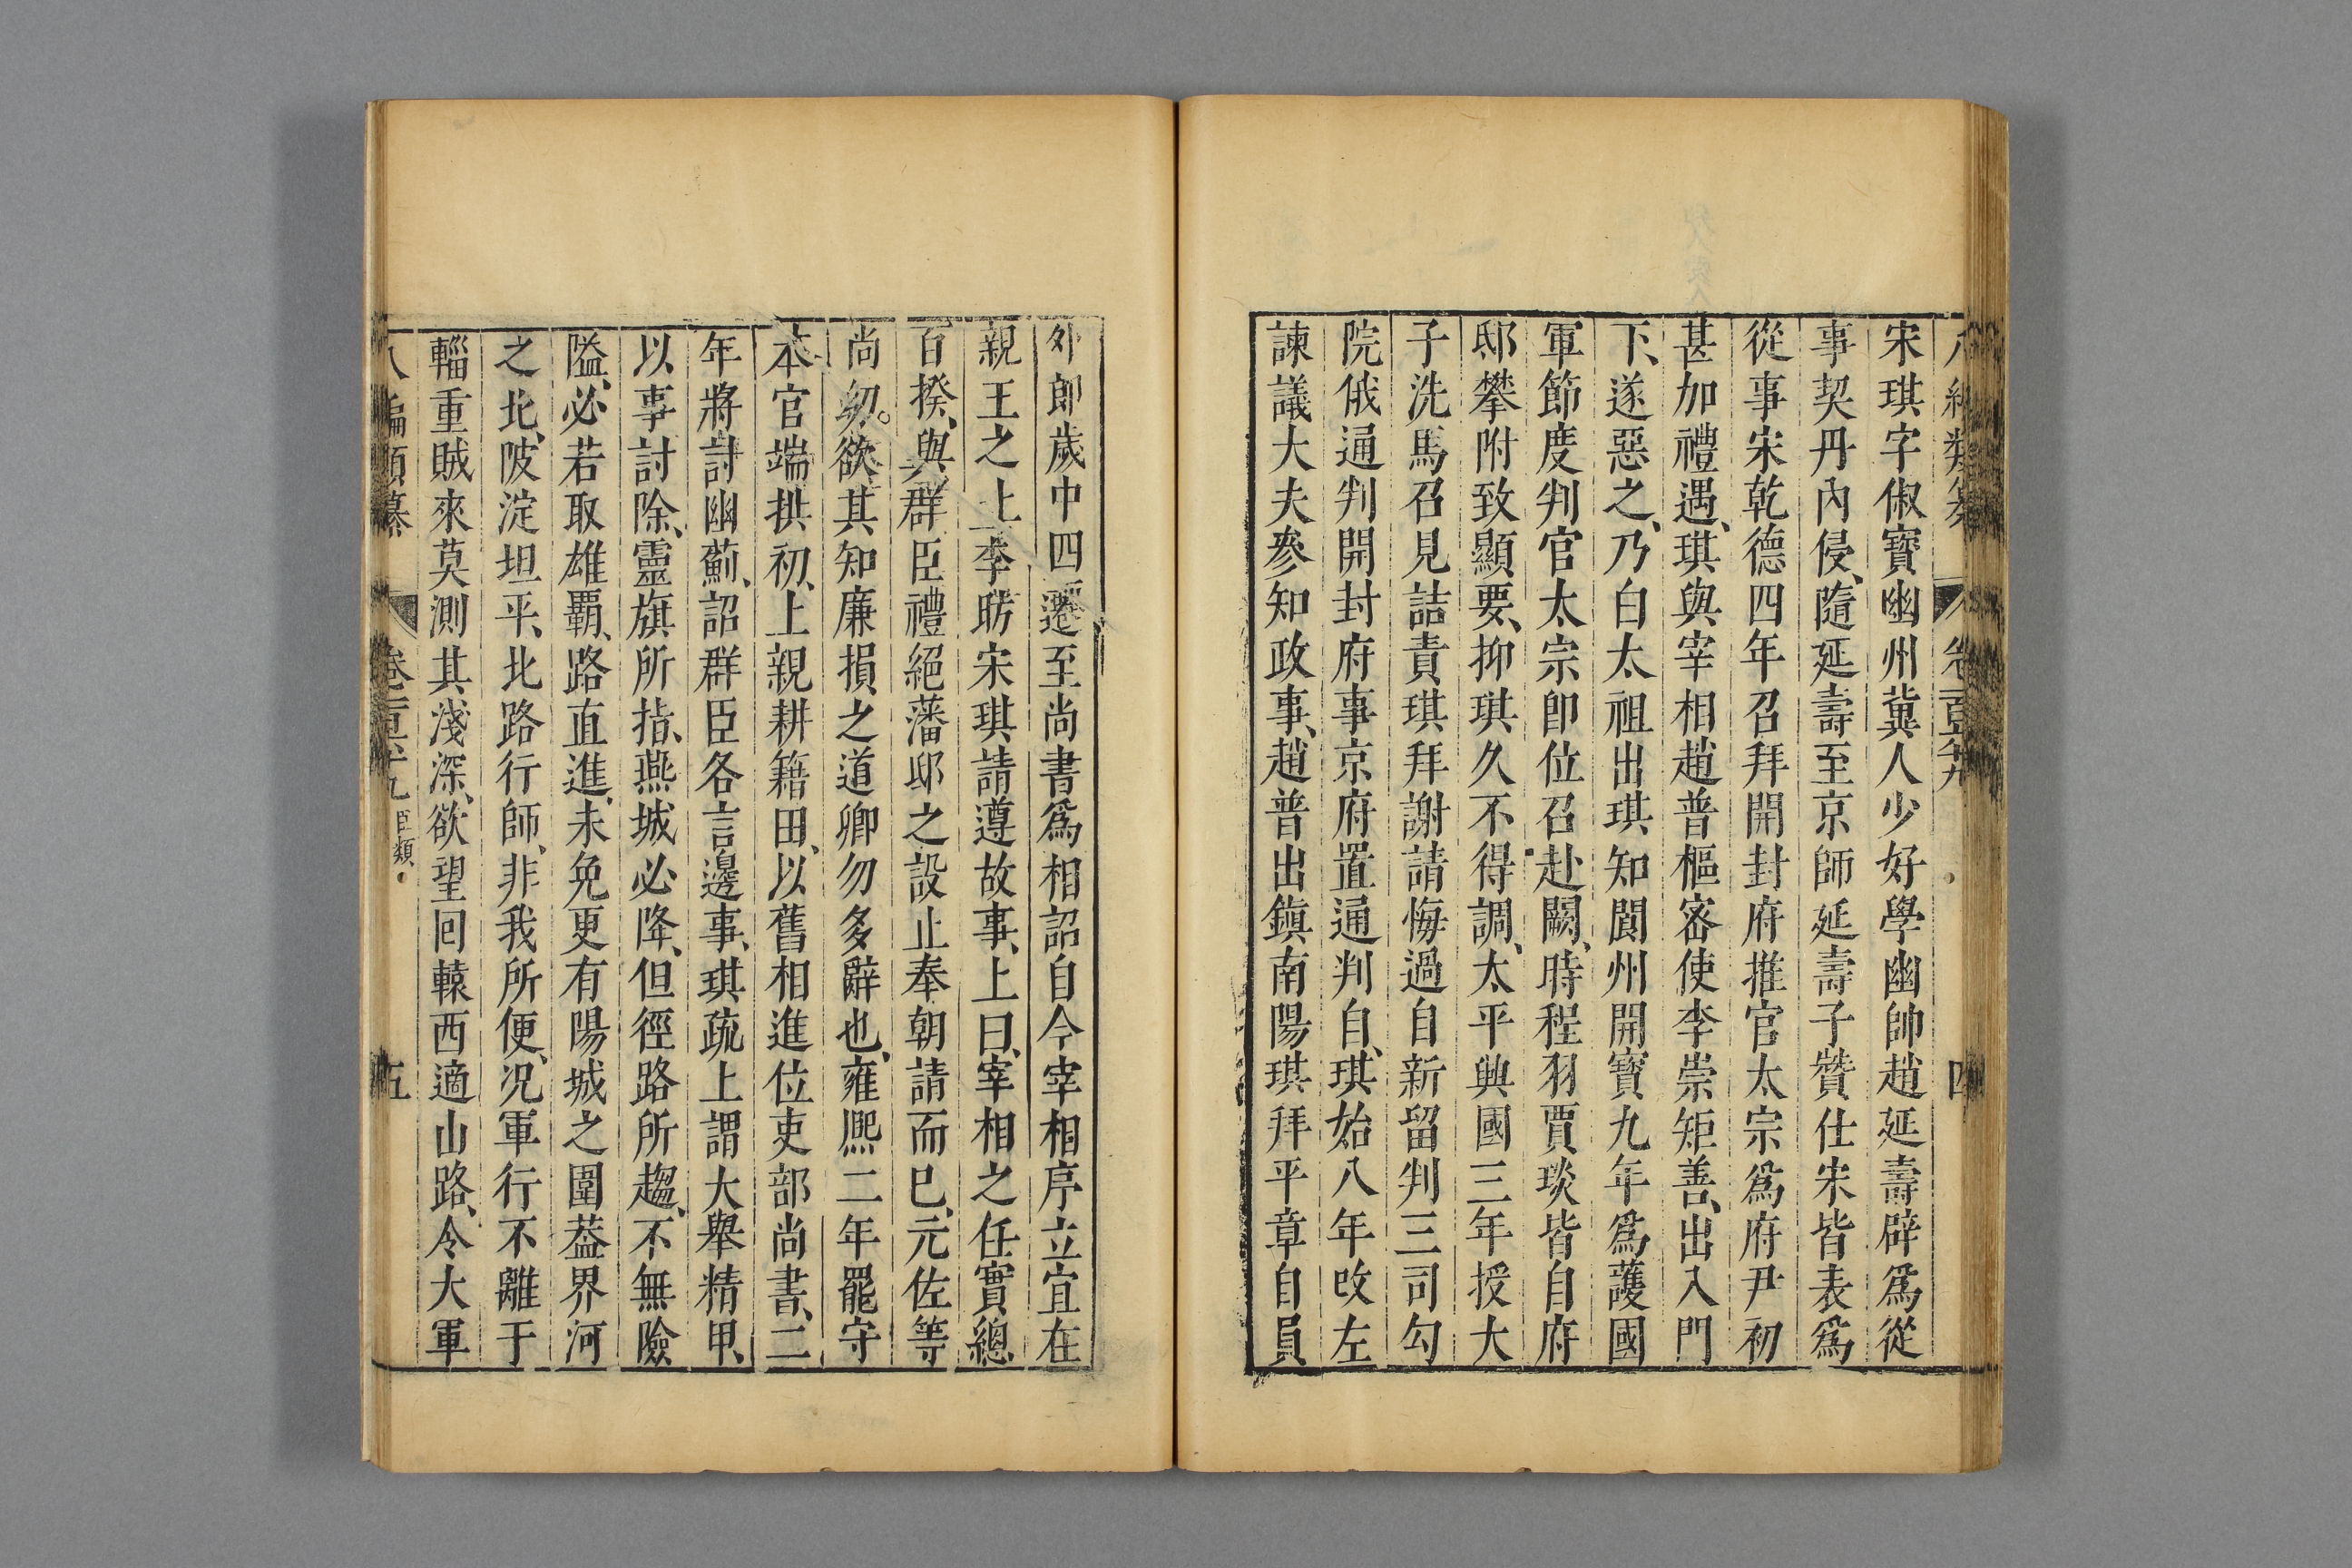 宋琪字俶寶幽州冀人少好學幽帥趙延壽辟爲從
事契丹內侵、隨延壽至京師延壽子贊仕宋皆表爲
從事宋乾德四年召拜開封府推官太宗爲府尹初
甚加禮遇、琪與宰相趙普樞密使李崇矩善、出入門
下、遂惡之、乃白太祖出琪知閬州開寶九年爲護國
軍節度判官太宗卽位召赴闕、時程羽賈琰皆自府
邸攀附致顯要、抑琪久不得調、太平興國三年授大
子洗馬召見詰責琪拜謝請悔過自新留判三司勾
院俄通判開封府事京府置通判自、琪始八年改左
諫議大夫參知政事、趙普出鎭南陽琪拜平章自員
外郎歲中四遷至尚書爲相詔自今宰相序立宜在
親王之上李昉宋琪請遵故事、上曰、宰相之任實總
百揆、與、群臣禮絕藩邸之設止奉朝請而巳、元佐等
尚幼。欲其知廉損之道卿勿多辭也、雍熙二年罷守
本官端拱初、上親耕籍田、以舊相進位吏部尚書、二
年將討幽薊、詔群臣各言邊事、琪疏上謂大舉精甲、
以事討除、靈旗所指、燕城必降、但徑路所趨、不無險
隘、必若取雄霸、路直進、未免更有陽城之圍葢界河
之北、陂淀坦平、北路行師、非我所便、况軍行不離于
輜重賊來莫測其淺深、欲望回轅西適山路、令大軍
八編類纂 卷 臣類 五